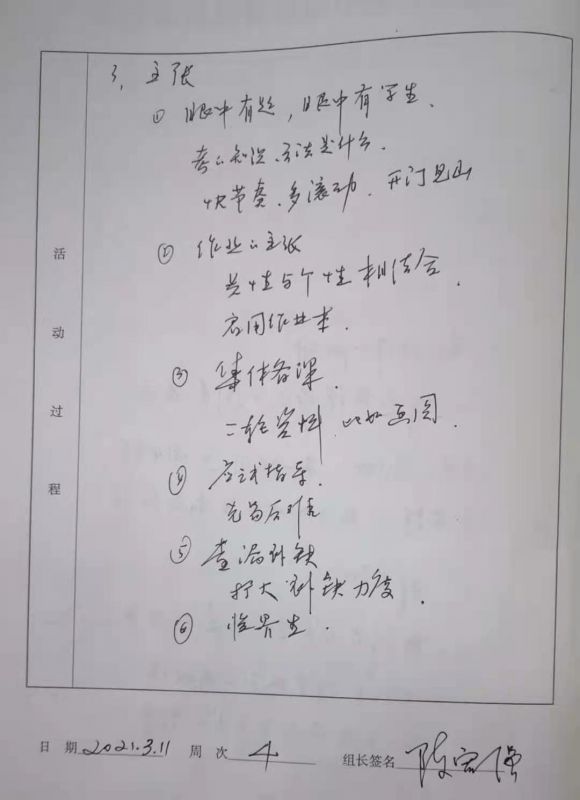 3、主张
① 眼中有题，眼中有学生．
考的知识、方法是什么．
快节奏、多滚动、开门见山
② 作业的主张
共性与个性相结合．
启用作业本．
③ 集体备课．
二轮资料，比如画图．
④ 应试指导．
先易后难
⑤ 查漏补缺
扩大补缺力度．
⑥ 临界生．
活动过程
日 期 2021.3.11 周 次 4 组长签名 陈宏强